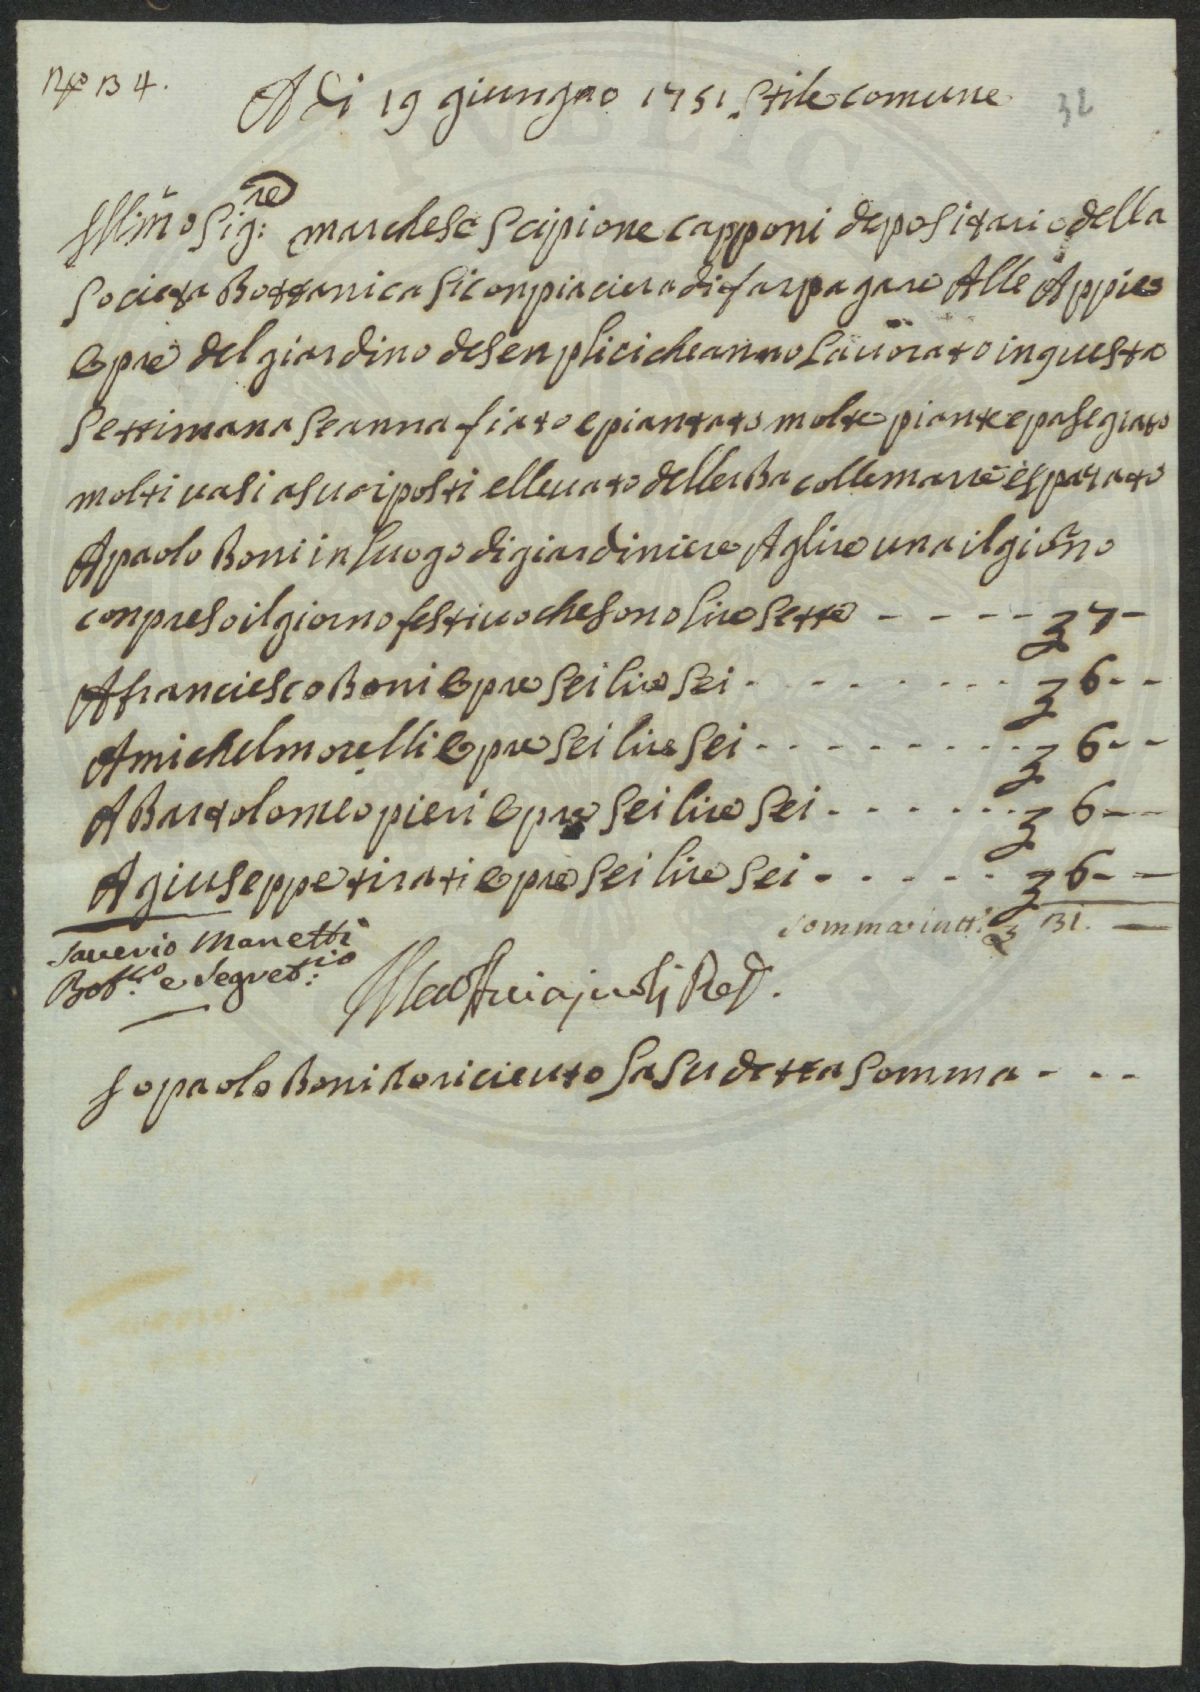 Nro 134.
A Di 19 giungno 1751 Stile comune
32
Illmo Sigre: marchese Scipione capponi depositario della
Societa Bottanica Si conpiaciera di far pagare Alle Appie
Opre del giardino de senplici che anno Lauorato in questa
Settimana Se anna fiato e piantato molte piante e pasegiato
molti uasi a suoi posti elleuato dellerba colle marre e sparato
A paolo Boni in luogo di giardiniere A glire una il giorno
conpreso il giorno festiuo che sono lire Sette - - - - - £ 7 -
A franciesco Boni Opre Sei lire Sei - - - - - - £ 6 - -
A michel morelli Opre Sei lire Sei - - - - - - £ 6 - -
A Bartolomeo pieri Opre Sei lire Sei - - - - - £ 6 - -
A giuseppe tirati Opre Sei lire Sei - - - - - £ 6 - -
Somma in tt: £ 31. —
Saverio Manetti
Botco: e Segretrio:
Io paolo Boni o riceuto La Su detta Somma - - -
PVBLIC